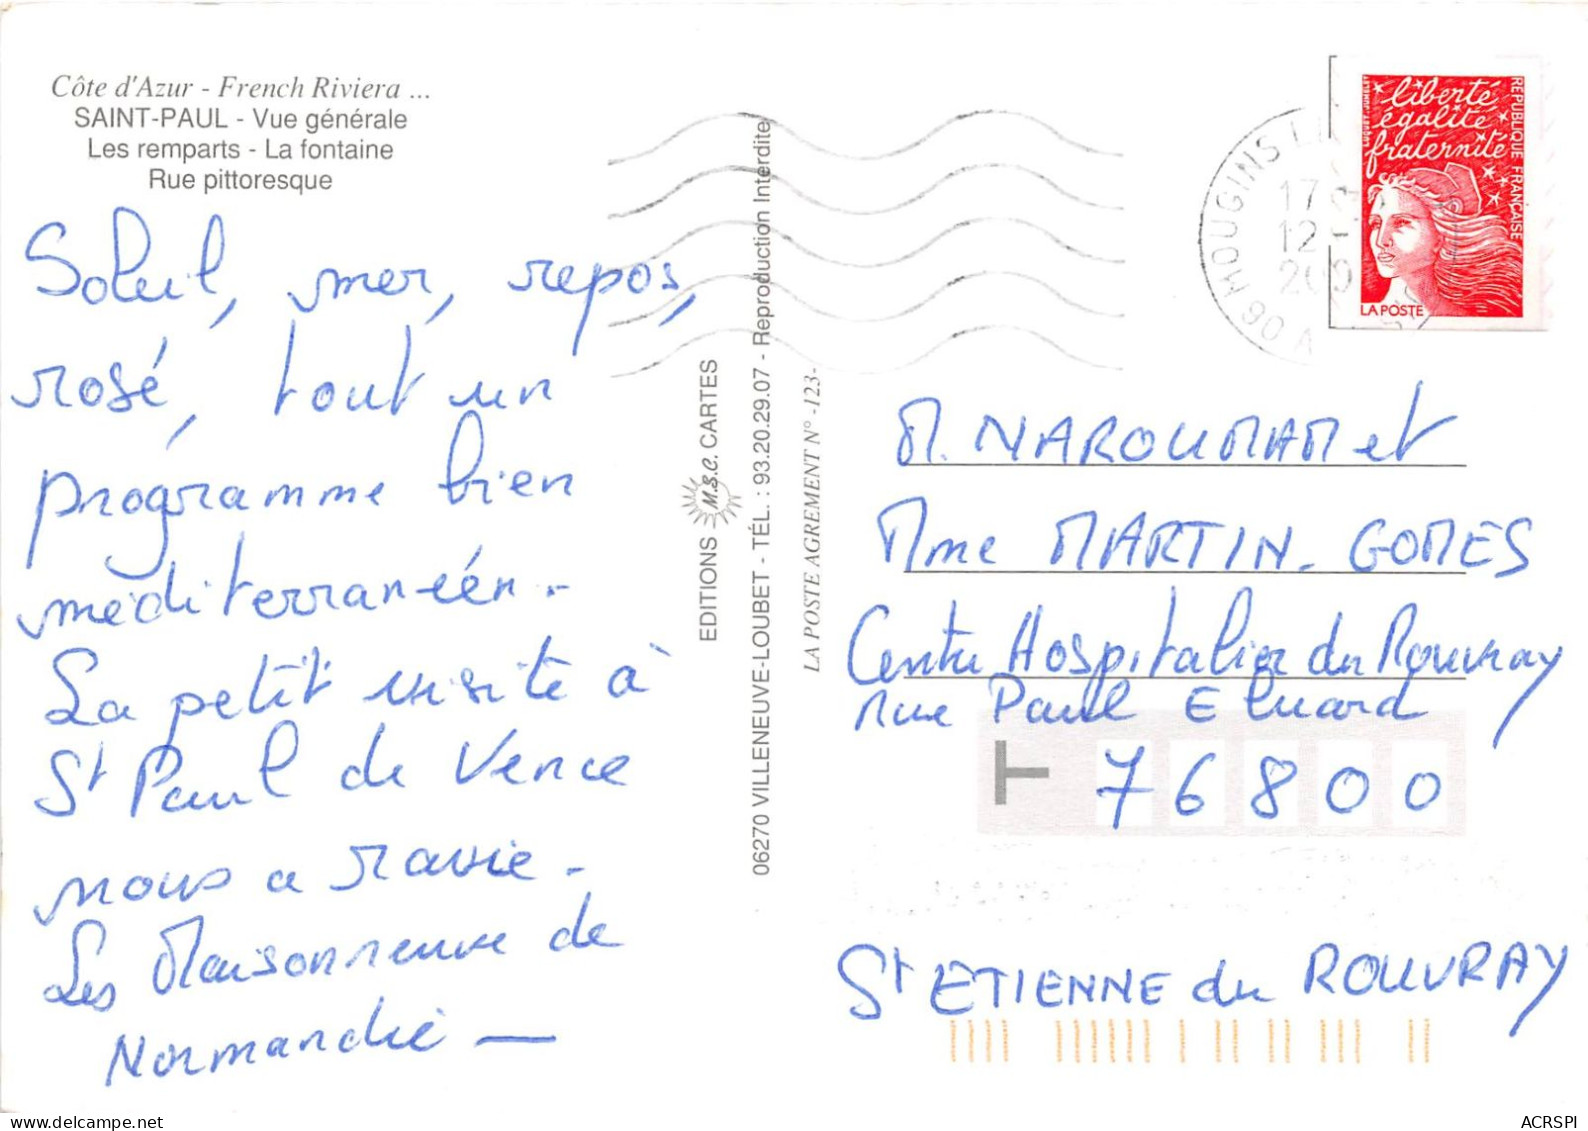 Côte d'Azur - French Riviera ...
SAINT-PAUL - Vue générale
Les remparts - La fontaine
Rue pittoresque
Soleil, mer, repos,
rosé, tout un
programme bien
méditerranéen.
La petit visite à
St Paul de Vence
nous a ravie.
Les Maisonneuve de
Normandie —
EDITIONS M.S.C. CARTES
06270 VILLENEUVE-LOUBET - TÉL. : 93.20.29.07 - Reproduction Interdite
LA POSTE AGREMENT N° -123-
06 MOUGINS
17
12
200
liberté
égalité
fraternité
RÉPUBLIQUE FRANÇAISE
LA POSTE
M. NAROUMAM et
Mme MARTIN-GOMES
Centre Hospitalier du Rouvray
rue Paul Eluard
T 76800
St ETIENNE du ROUVRAY
ACRSPI